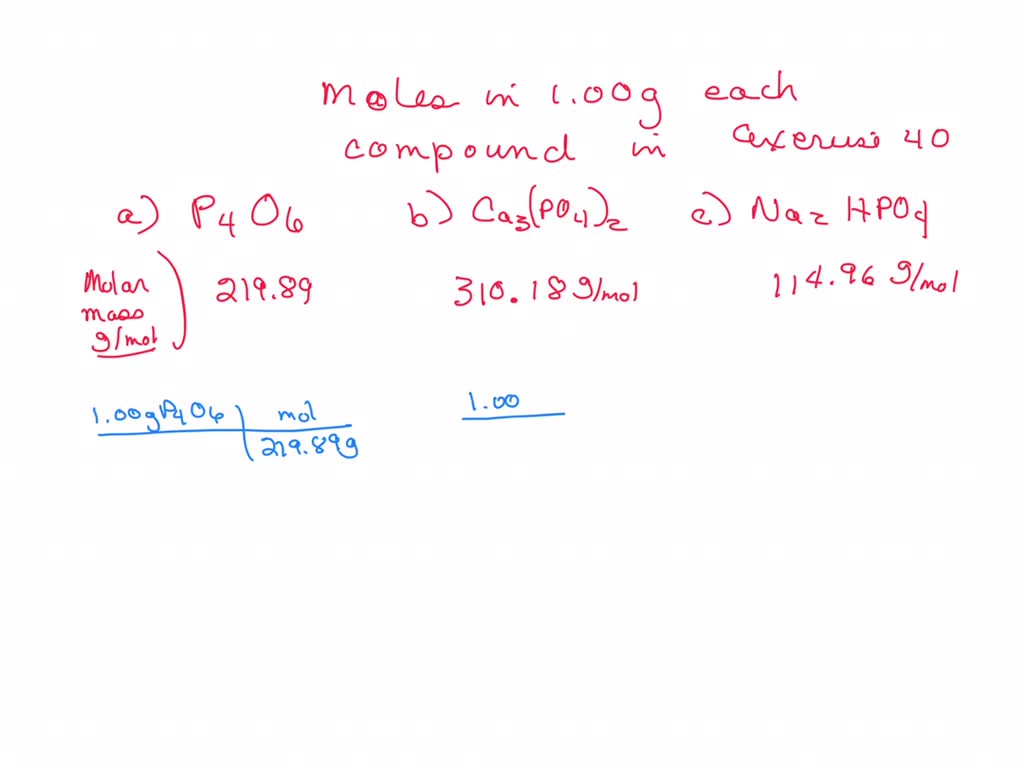 Moles in 1.00g each
compound in exercise 40
a) P4O6 b) Ca3(PO4)2 c) Na2HPO4
Molar mass g/mol) 219.89 310.18 g/mol 114.96 g/mol
1.00g P4O6 | mol 1.00
219.89g